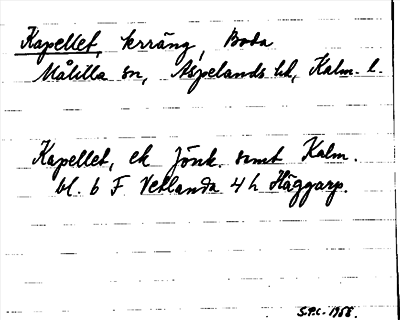 Kapellet, kräng, Boda
Målilla sn, Aspelands hd, Kalm. l.
Kapellet, ek Jönk. samt Kalm.
bl. 6 F Vetlanda 4 h Häggarp.
S.P.C. 1958.